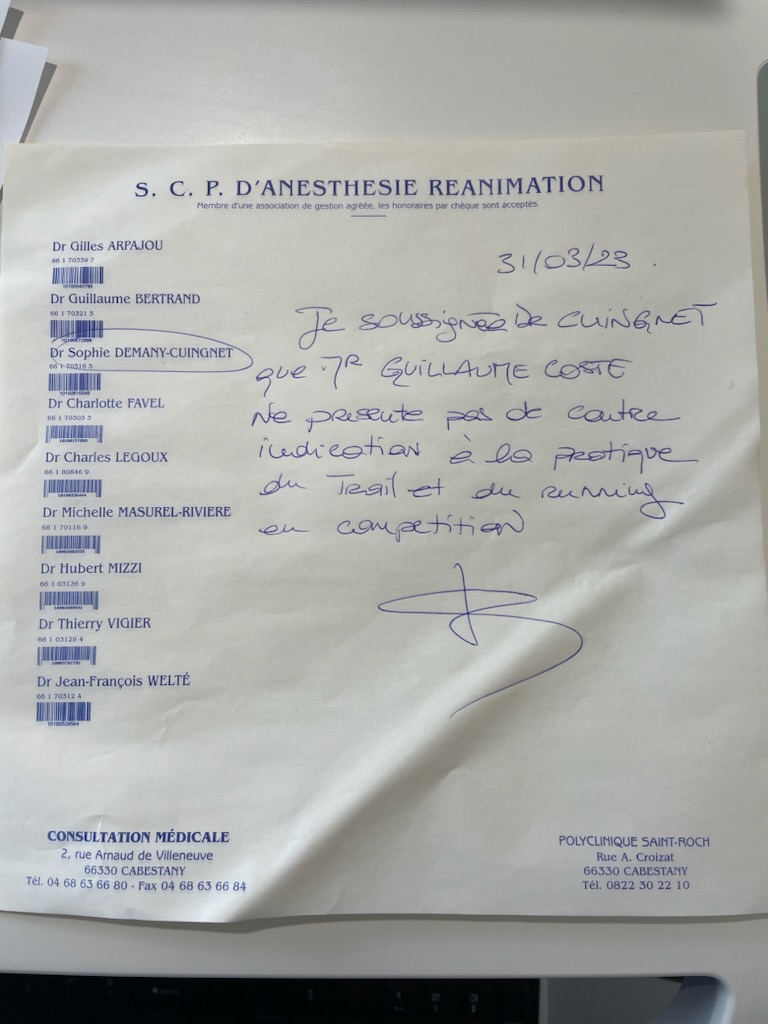 S. C. P. D'ANESTHESIE REANIMATION
Membre d'une association de gestion agréée, les honoraires par chèque sont acceptés.
31/03/23.
Dr Gilles ARPAJOU
66 1 70359 7
Dr Guillaume BERTRAND
66 1 70321 5
Dr Sophie DEMANY-CUINGNET
66 1 70316 5
Dr Charlotte FAVEL
66 1 70303 3
Dr Charles LEGOUX
66 1 80846 9
Dr Michelle MASUREL-RIVIERE
66 1 70116 9
Dr Hubert MIZZI
66 1 03136 9
Dr Thierry VIGIER
66 1 03129 4
Dr Jean-François WELTÉ
66 1 70312 4
Je soussignée Dr CUINGNET
que Mr GUILLAUME COSTE
Ne presente pas de contre
indication à la pratique
du Trail et du running
en competition
CONSULTATION MÉDICALE
2, rue Arnaud de Villeneuve
66330 CABESTANY
Tél. 04 68 63 66 80 - Fax 04 68 63 66 84
POLYCLINIQUE SAINT-ROCH
Rue A. Croizat
66330 CABESTANY
Tél. 0822 30 22 10